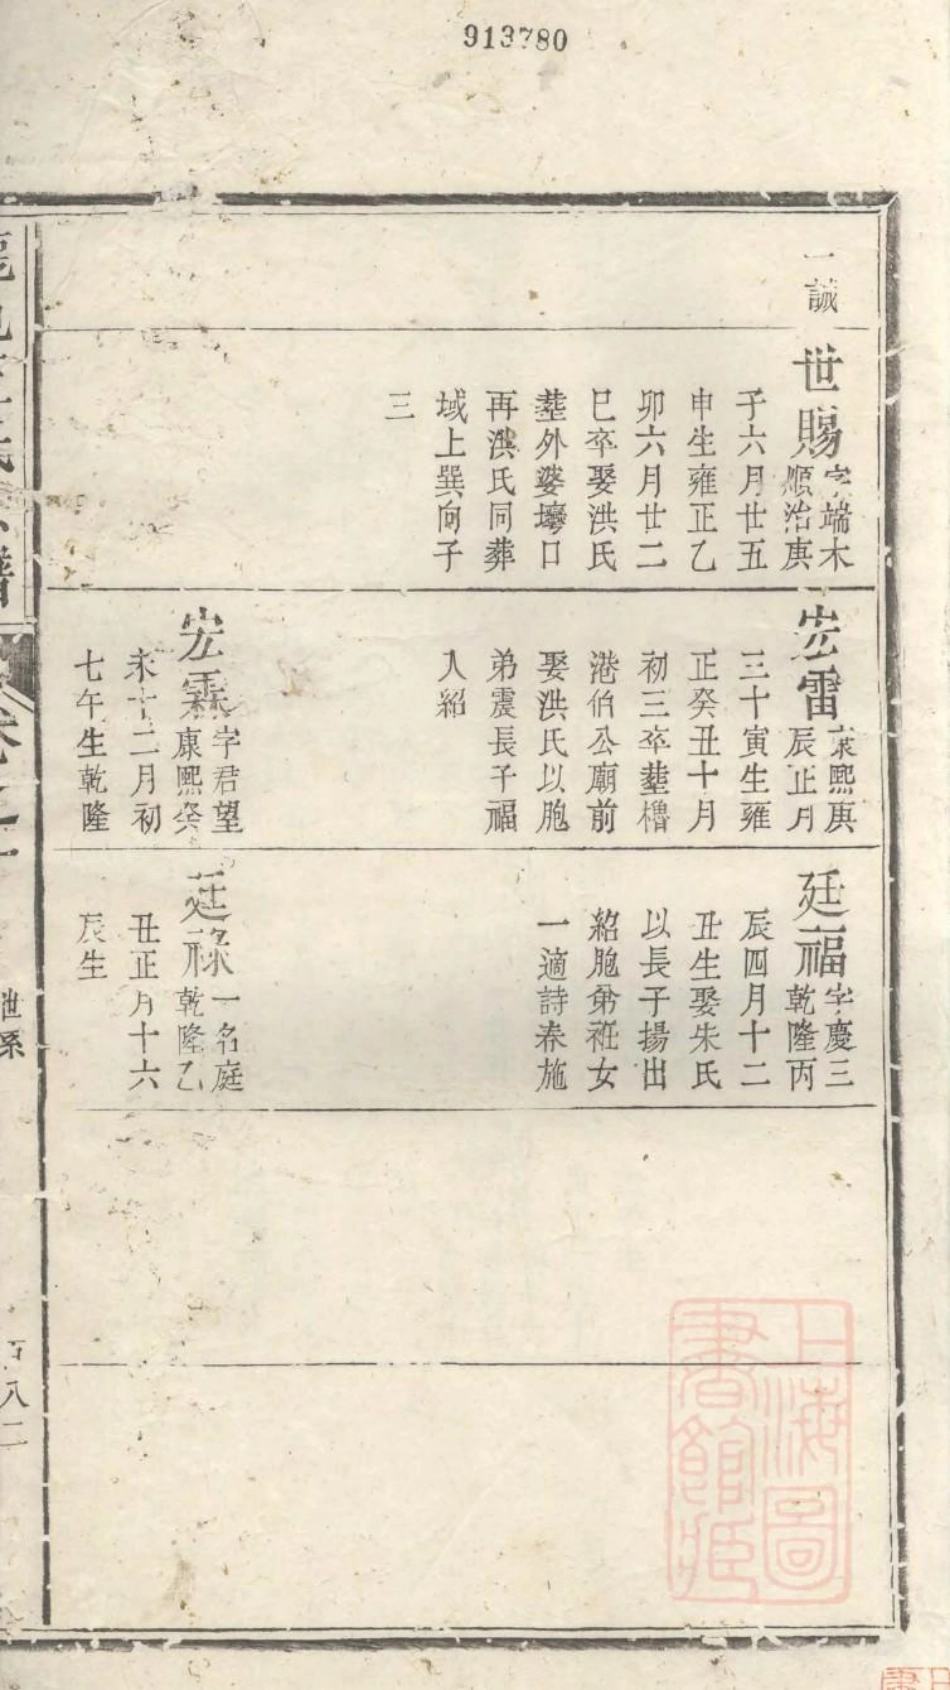 913780
一誠
世賜
字端木
順治庚
子六月廿五
申生雍正乙
卯六月廿二
巳卒娶洪氏
塟外婆塆口
再洪氏同葬
域上巽向子
三
宏雷
康熙庚
辰正月
三十寅生雍
正癸丑十月
初三卒塟櫓
港伯公廟前
娶洪氏以胞
弟震長子福
入紹
宏霖
字君望
康熙癸
未十二月初
七午生乾隆
廷福
字慶三
乾隆丙
辰四月十二
丑生娶朱氏
以長子揚出
紹胞弟祍女
一適詩春施
廷祿
一名庭
乾隆乙
丑正月十六
辰生
世系
百八二
上海圖
書館藏